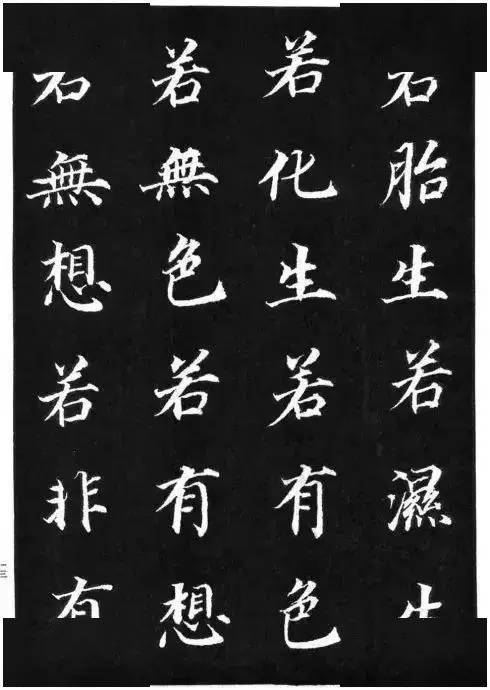 胎生若濕
若化生若有色
若無色若有想
無想若非